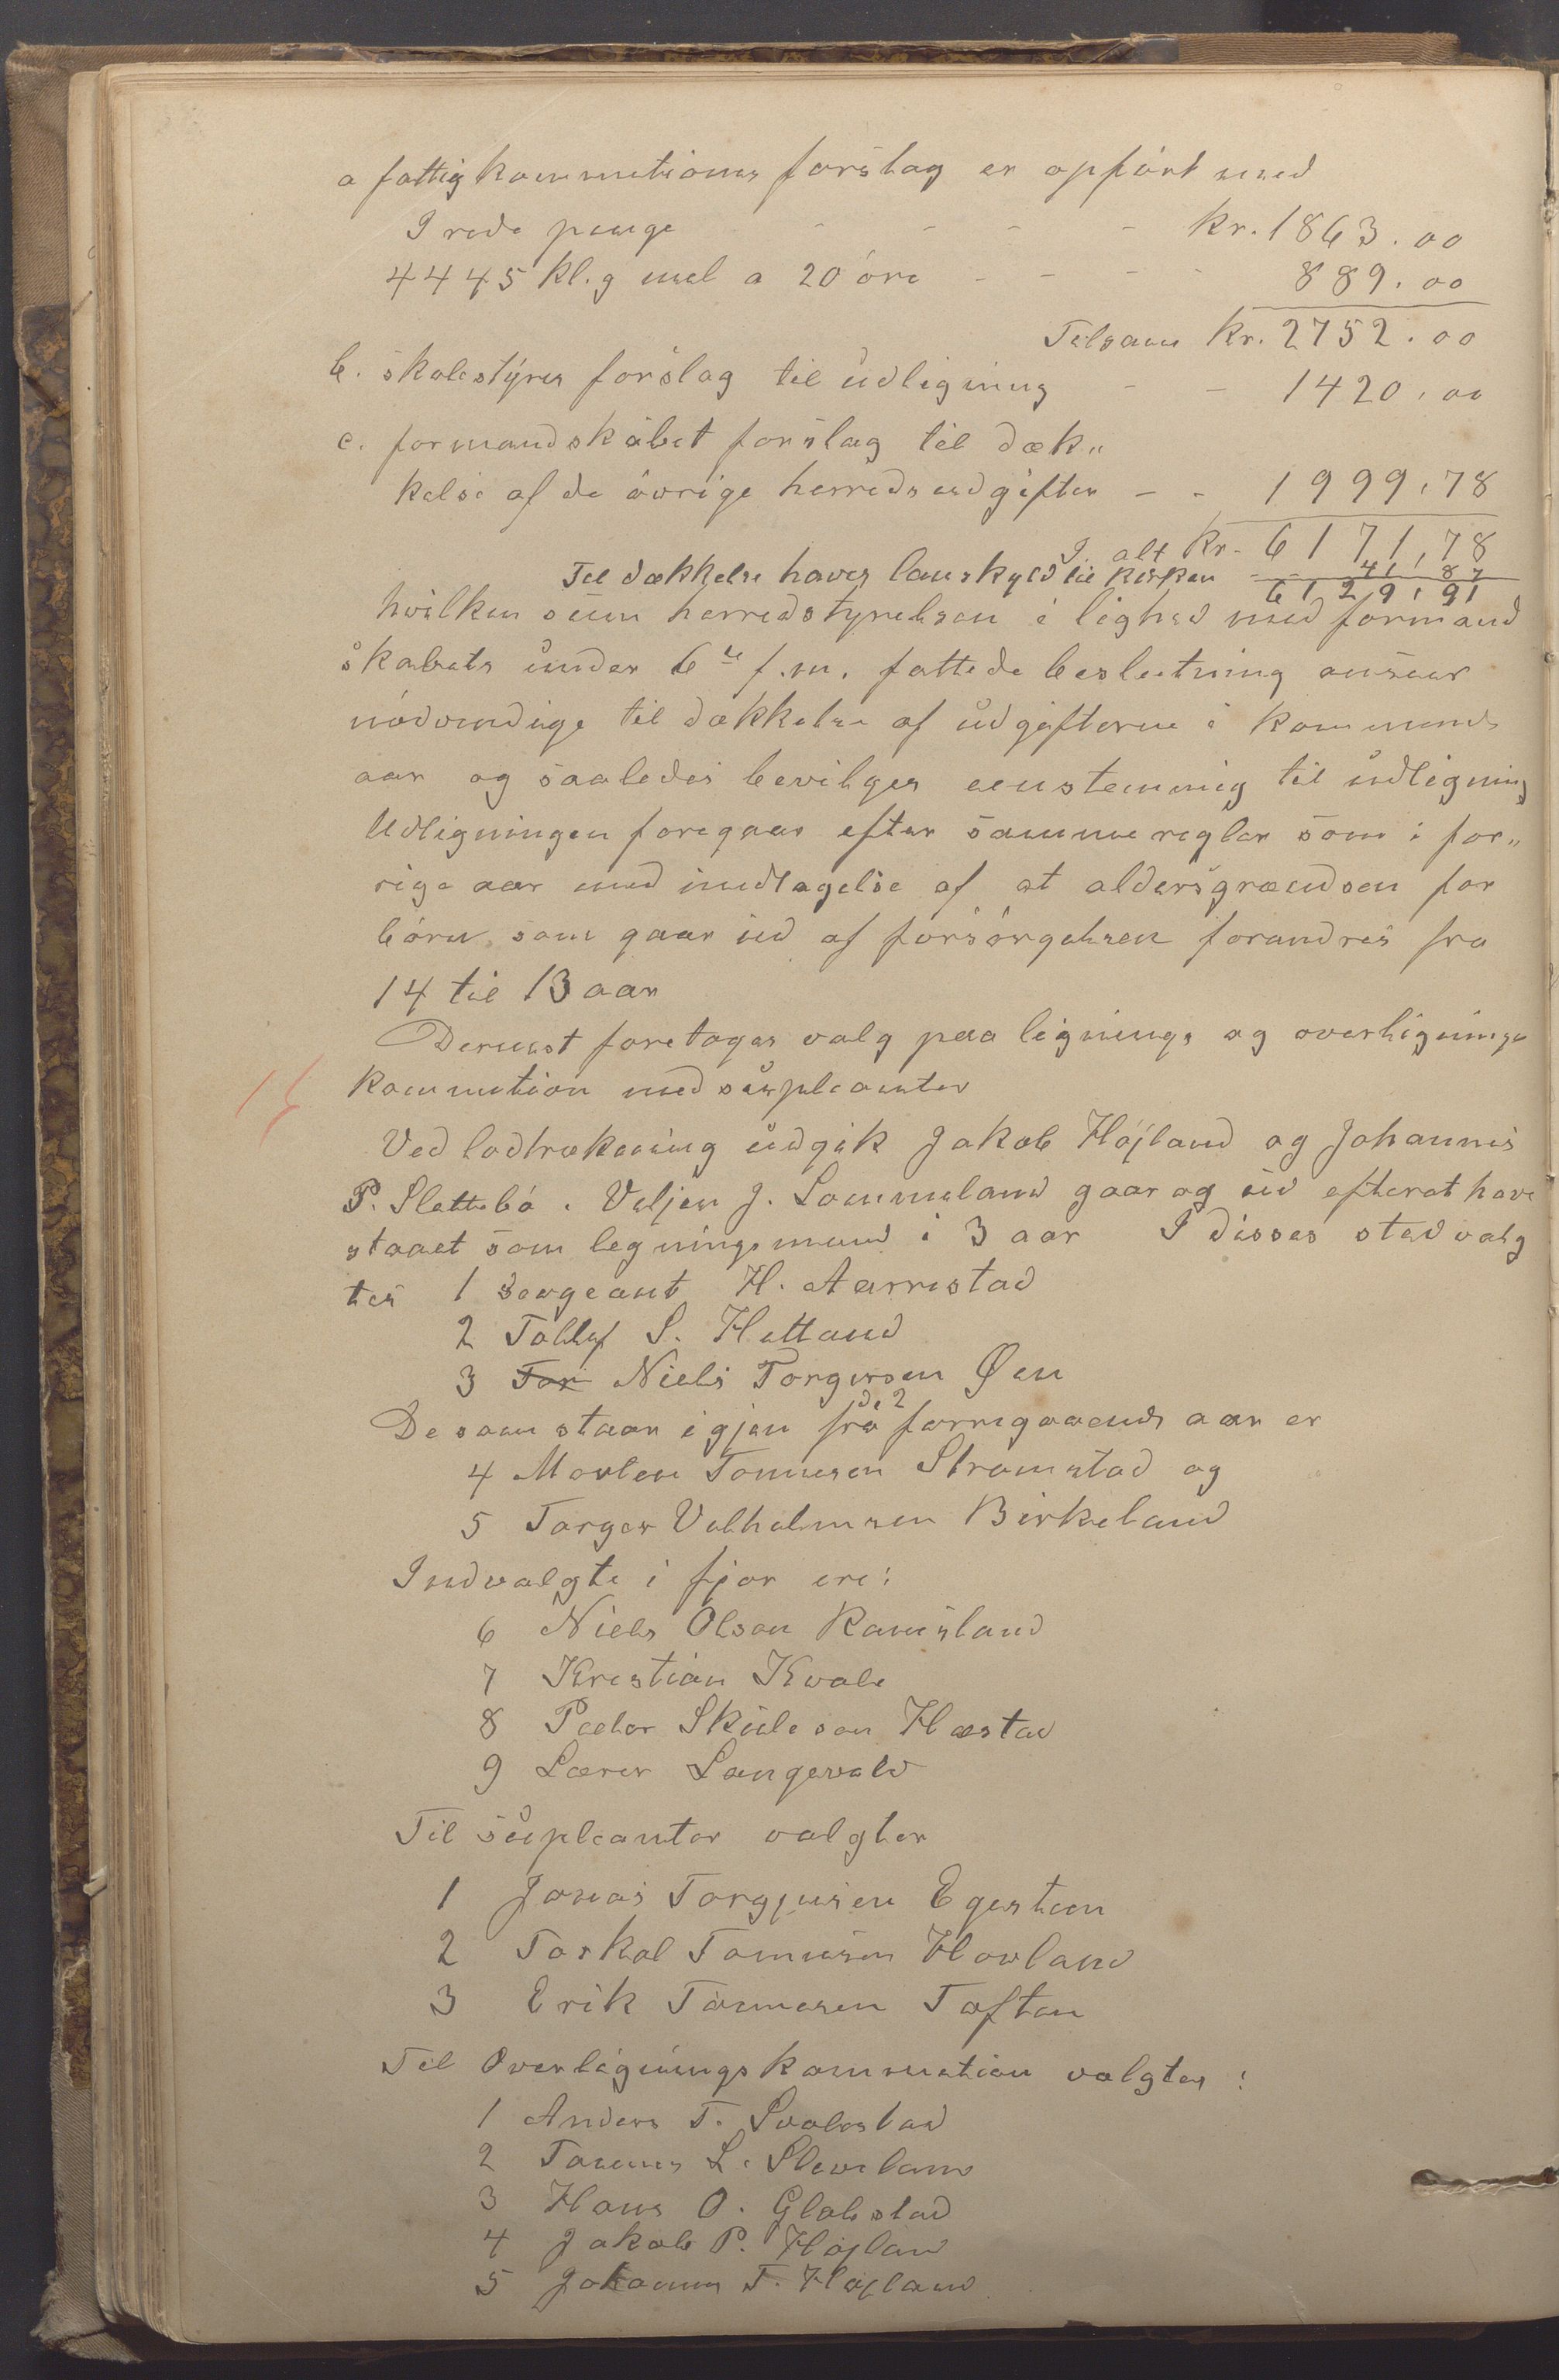 a fattigkommutions forslag er opført med
I rede penge - - - - - Kr. 1863.00
4445 kl.g mel a 20 øre - - - - 889.00
Tilsam Kr. 2752.00
b. skolestyres forslag til udligning - - 1420,00
c. formandskabet forslag til dæk„
kelse af de øvrige herredsudgifter - - 1999,78
I alt Kr. 6171,78
Til dækkelse haves lanskyld til kirken - - 41,87
6129,91
hvilken sum herredstyrelsen i lighed med formand
skabets under 6te f.m. fattede beslutning anseer
nødvendige til dækkelse af udgifterne i kommends
aar og saaledes bevilges eenstemmig til udligning
Udligningen foregaar efter samme regler som i for„
rige aar med undtagelse af at aldersgrændsen for
børn som gaar ud af forsørgelsen forandres fra
14 til 13 aar
Dernest foretages valg paa lignings og overlignings
kommution med supleanter
Ved lodtrækning udgik Jakob Højland og Johannes
P. Slettebø. Veljen J. Lommeland gaar og ud efterat have
staaet som legningsmand i 3 aar I disses sted valg
tes 1 Sergeant H. Aarrestad
2 Tollef S. Hetland
3 Tor Niels Torgersen Øen
De som staar igjen fra de 2 forregaaende aar er
4 Morten Tonnesen Stromstad og
5 Torger Velhelmsen Birkeland
Indvalgte i fjor ere:
6 Niels Olson Ramsland
7 Kristian Kvale
8 Peder Skuleson Hæstad
9 Lærer Langevald
Til supleanter valgtes
1 Jonas Torgjusen Egesteen
2 Torkel Tonnesen Hovland
3 Erik Tonnesen Toften
Til Overlignings kommution valgtes:
1 Anders T. Svalestad
2 Tonnes L. Sleveland
3 Hans O. Glabstad
4 Jakob P. Højland
5 Johannes T. Højland